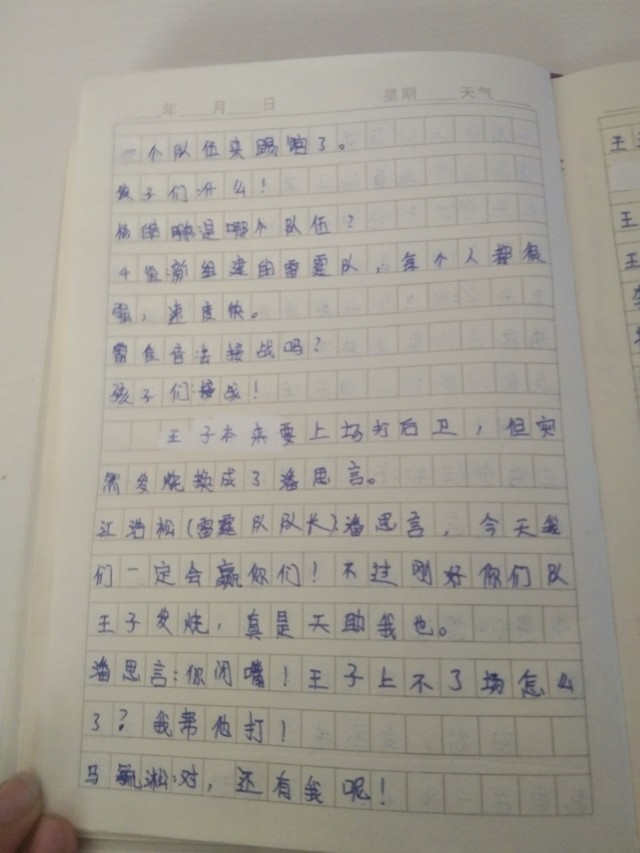 年 月 日 星期 天气
一个队伍来踢馆了。
孩子们:什么!
是哪个队伍?
年前组建的雷霆队,每个人都很
强,速度快。
接战吗?
孩子们:接战!
王子本来要上场打后卫,但突
然发烧换成了潘思言。
江浩松(雷霆队队长):潘思言,今天我
们一定会赢你们!不过刚好你们队
王子发烧,真是天助我也。
潘思言:你闭嘴!王子上不了场怎么
了?我帮他打!
马淞:对,还有我呢!
王
王
王